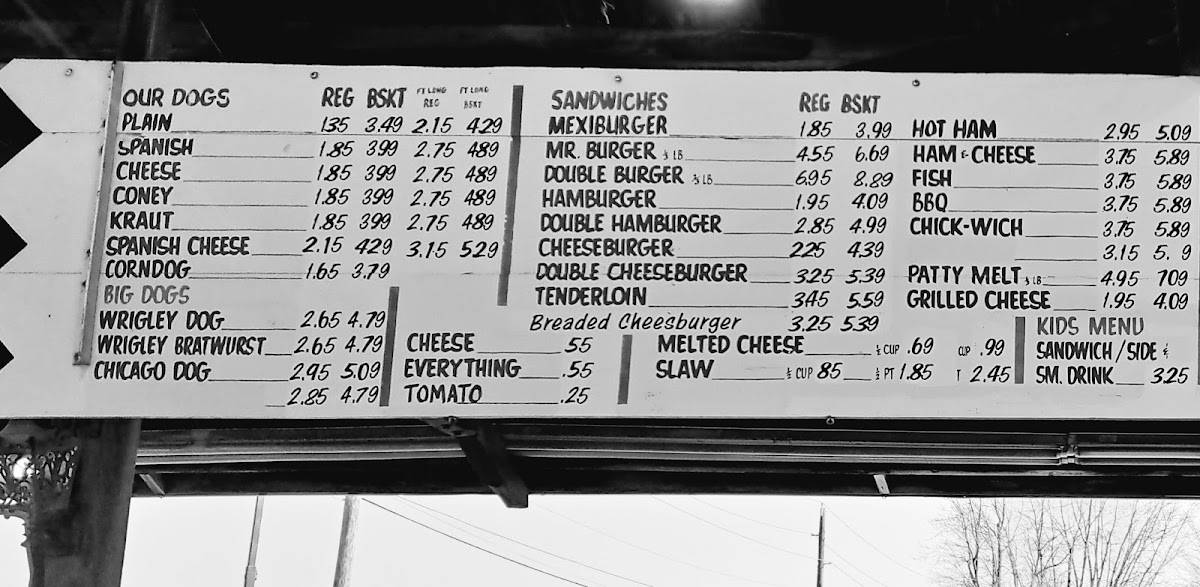 OUR DOGS REG BSKT FT LONG REG FT LONG BSKT
PLAIN 135 3.49 2.15 429
SPANISH 1.85 399 2.75 489
CHEESE 1.85 399 2.75 489
CONEY 1.85 399 2.75 489
KRAUT 1.85 399 2.75 489
SPANISH CHEESE 2.15 429 3.15 529
CORNDOG 1.65 3.79
BIG DOGS
WRIGLEY DOG 2.65 4.79
WRIGLEY BRATWURST 2.65 4.79
CHICAGO DOG 2.95 509
2.85 4.79
CHEESE .55
EVERYTHING .55
TOMATO .25
SANDWICHES REG BSKT
MEXIBURGER 1.85 3.99
MR. BURGER LB 4.55 6.69
DOUBLE BURGER LB 6.95 8.89
HAMBURGER 1.95 4.09
DOUBLE HAMBURGER 2.85 4.99
CHEESEBURGER 225 4.39
DOUBLE CHEESEBURGER 325 5.39
TENDERLOIN 345 5.59
Breaded Cheesburger 3.25 539
MELTED CHEESE ½ CUP .69 CUP .99
SLAW ½ CUP 85 ½ PT 1.85 T 2.45
HOT HAM 2.95 5.09
HAM & CHEESE 3.75 5.89
FISH 3.75 589
BBQ 3.75 5.89
CHICK-WICH 3.75 5.89
3.15 5. 9
PATTY MELT LB 4.95 709
GRILLED CHEESE 1.95 4.09
KIDS MENU
SANDWICH/SIDE &
SM. DRINK 3.25